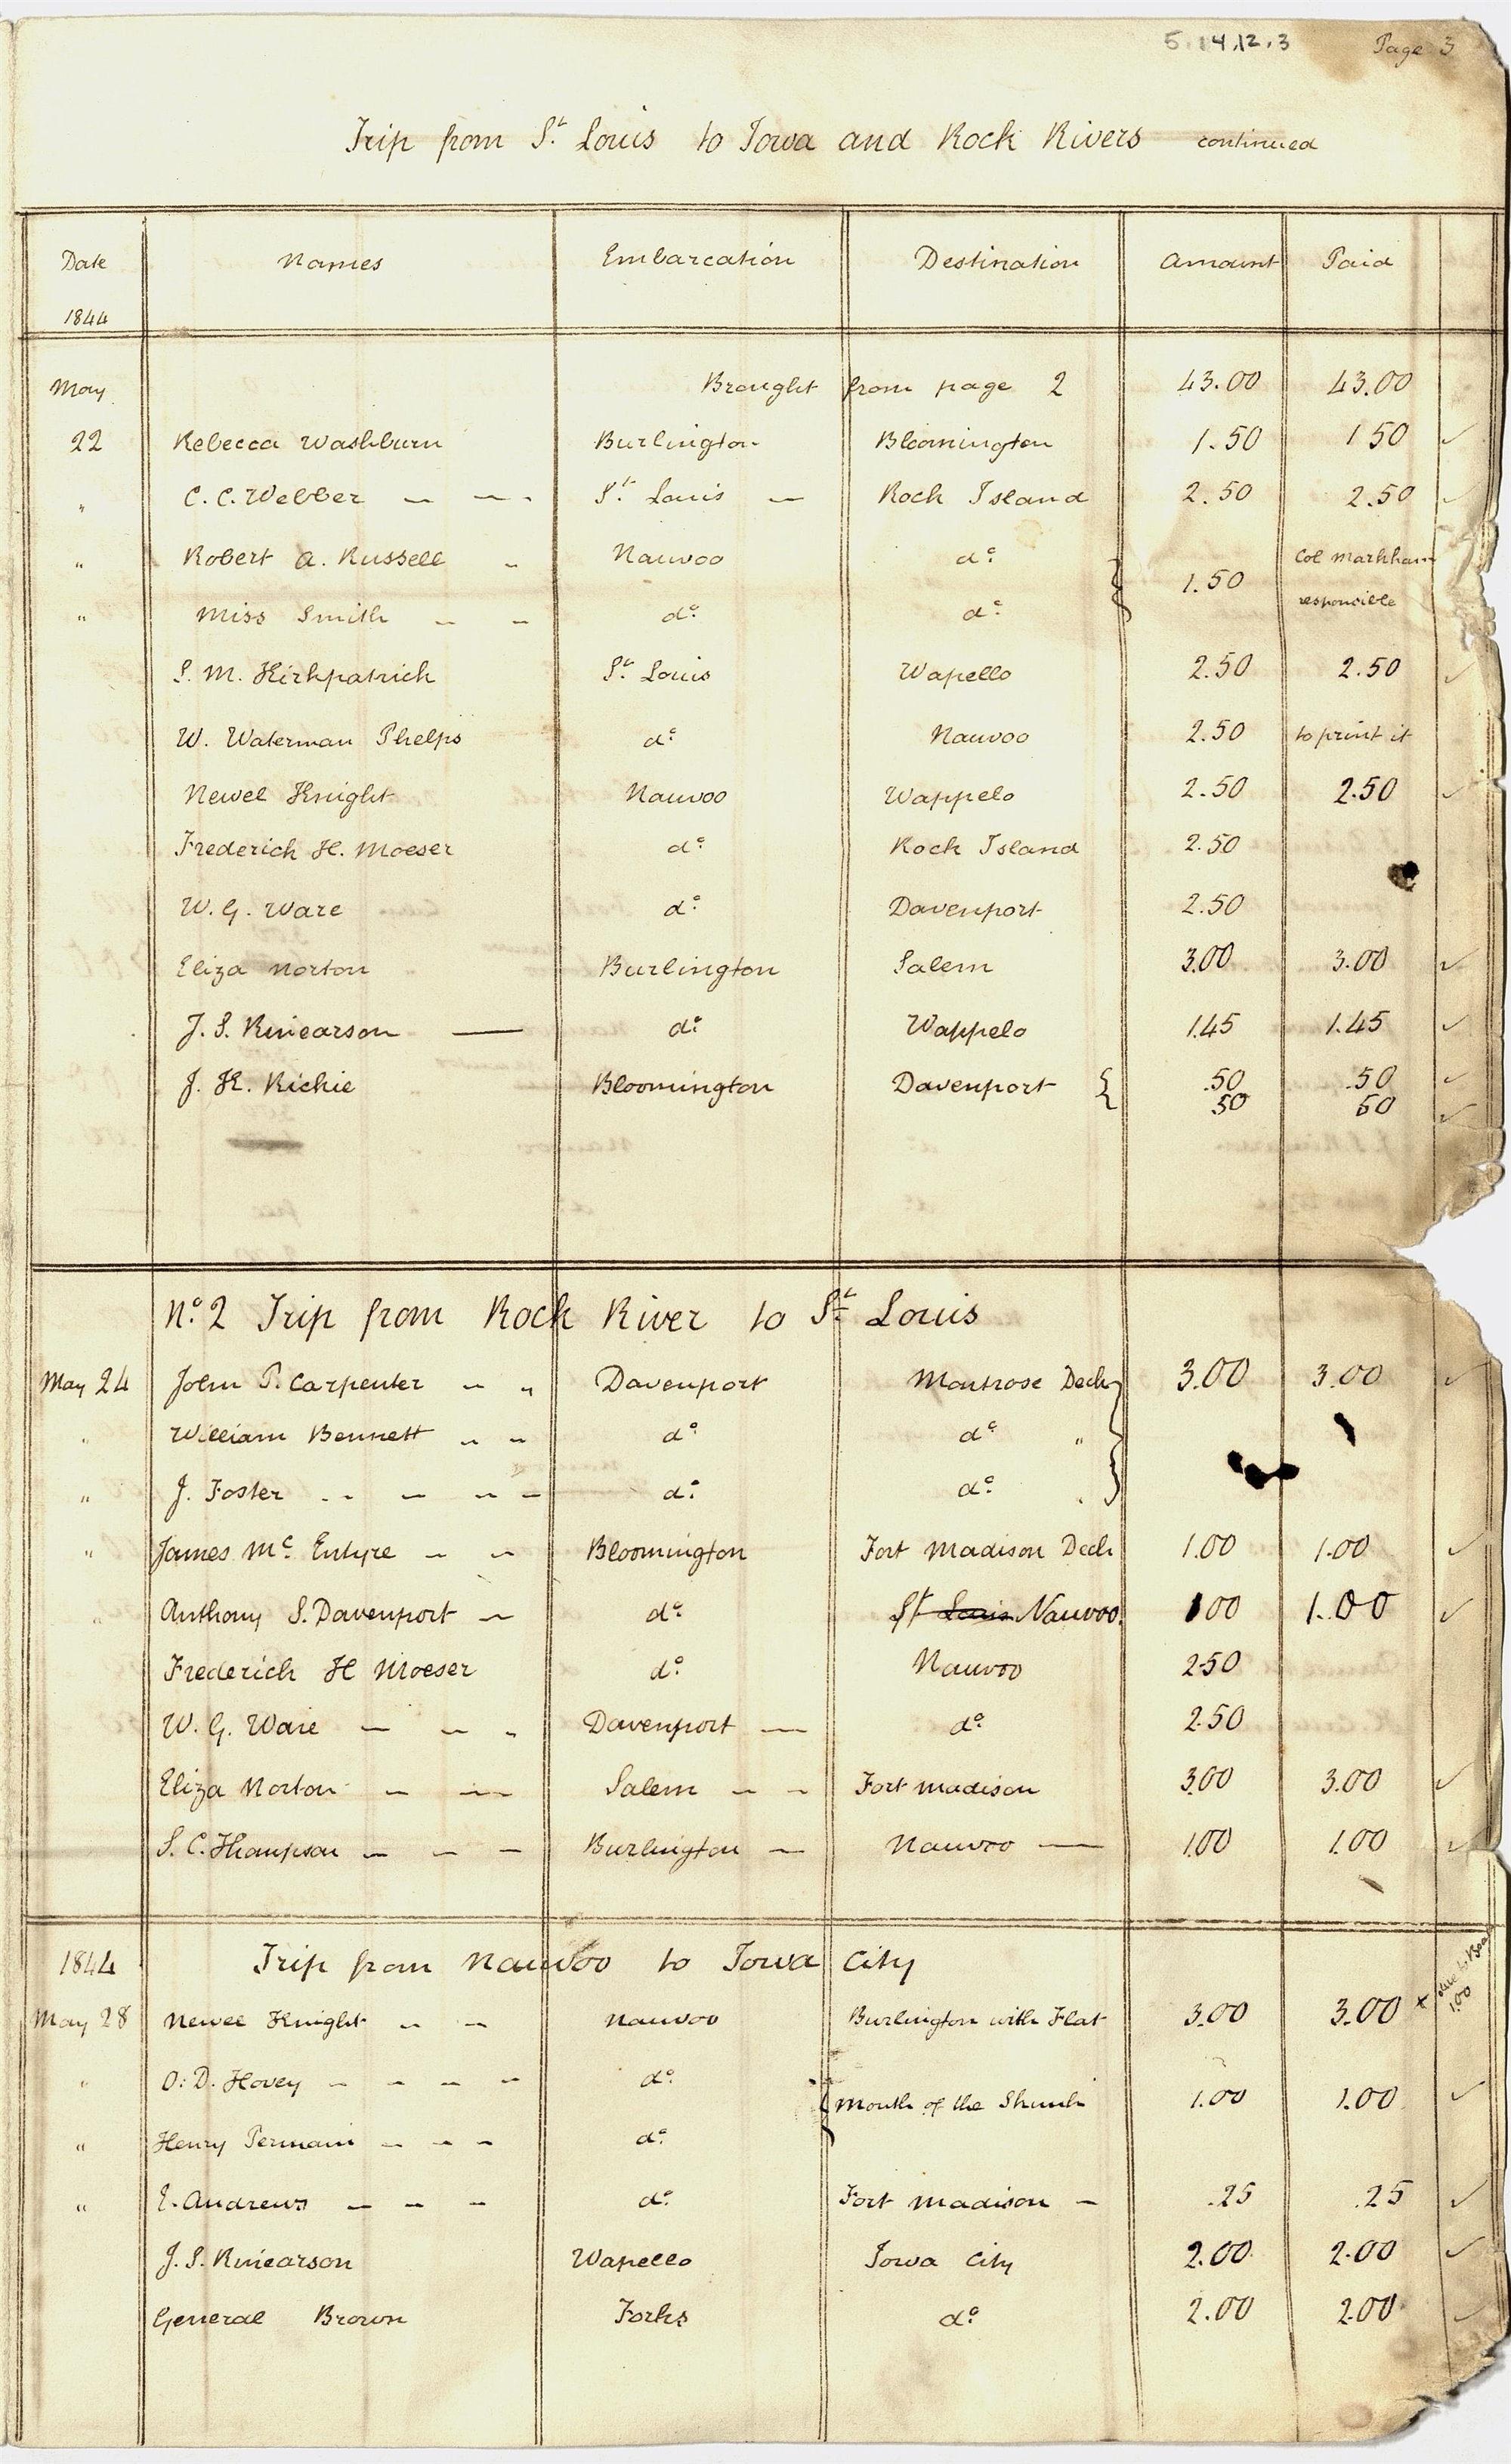 5.14.12.3 Page 3
Trip from St. Louis to Iowa and Rock Rivers continued
Date Names Embarcation Destination Amount Paid
1844
May Brought from page 2 43.00 43.00
22 Rebecca Washburn Burlington Bloomington 1.50 1 50 ✓
" C. C. Webber — — St. Louis — Rock Island 2.50 2.50 ✓
" Robert A. Russell " Nauvoo do. Col Markham
1.50
" Miss Smith — — do. do. responcible
S. M. Kirkpatrick St. Louis Wapello 2.50 2.50 ✓
W. Waterman Phelps do. Nauvoo 2.50 to print it
Newel Knight Nauvoo Wappelo 2.50 2.50 ✓
Frederick H. Moeser do. Rock Island 2.50
W. G. Ware do. Davenport 2.50
Eliza Norton Burlington Salem 3.00 3.00 ✓
J. S. Kinearson — do. Wappelo 1.45 1.45 ✓
J. K. Richie Bloomington Davenport { .50 .50 ✓
50 50 ✓
No. 2 Trip from Rock River to St. Louis
May 24 John P. Carpenter " " Davenport Montrose Deck 3.00 3.00 ✓
" William Bennett " " do. do. "
" J. Foster - - - - do. do.
" James Mc. Entyre — — Bloomington Fort Madison Deck 1.00 1.00 ✓
" Anthony S. Davenport — do. St Louis Nauvoo. 1 00 1.00 ✓
Frederick H Moeser do. Nauvoo 2.50
W. G. Ware — — - Davenport — do. 2.50
Eliza Norton — — Salem — — Fort Madison 3.00 3.00 ✓
S. C. Thompson — — — Burlington — Nauvoo — 1.00 1.00 ✓
1844 Trip from Nauvoo to Iowa City
May 28 Newel Knight — — Nauvoo Burlington with Flat 3.00 3.00 x 1.00
" O. D. Hovey — — — — do.
{ Mouth of the Shunk 1.00 1.00 ✓
" Henry Permain — — — do.
" E. Andrews — — — do. Fort Madison — .25 .25 ✓
J. S. Kinearson Wapello Iowa City 2.00 2.00 ✓
General Brown Forks do. 2.00 2.00 ✓